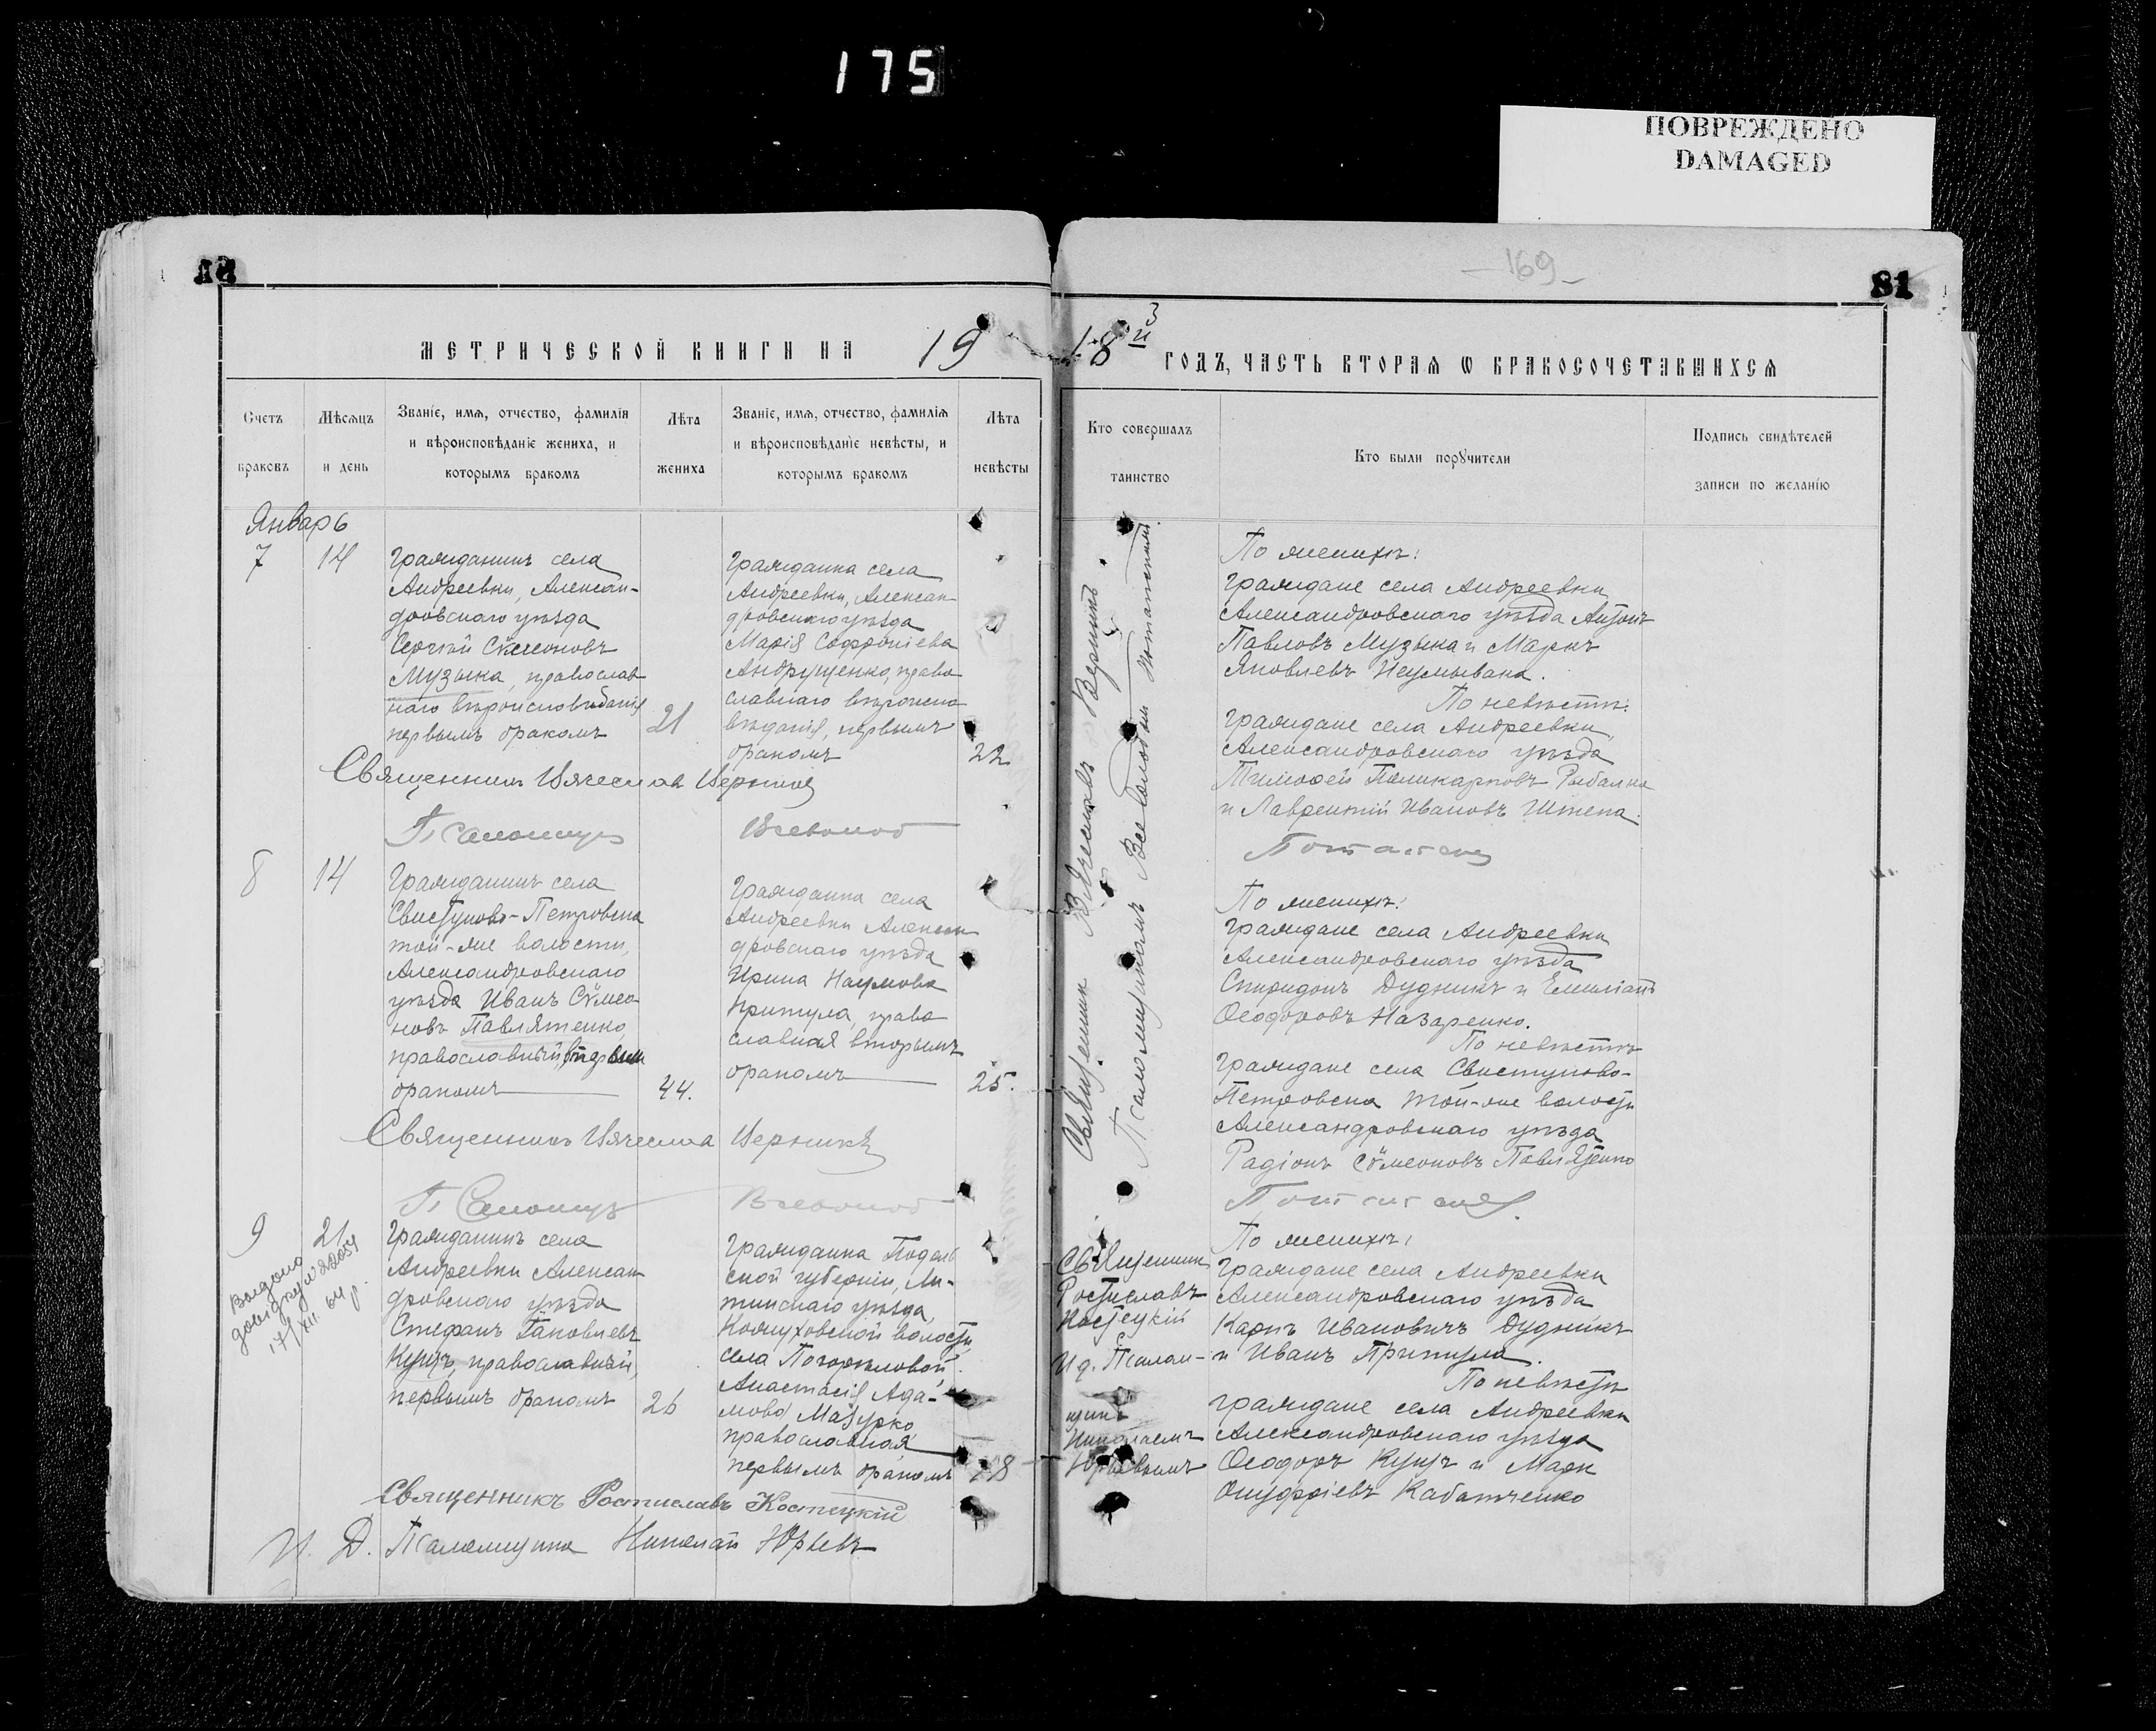 175
ПОВРЕЖДЕНО
DAMAGED
— 169 —
81
МЕТРИЧЕСКОЙ КНИГИ НА 19
18 й ГОДЪ, ЧАСТЬ ВТОРАЯ Ѡ БРАКОСОЧЕТАВШИХСЯ
Счетъ браковъ
Мѣсяцъ и день
Званіе, имя, отчество, фамилія
и вѣроисповѣданіе жениха, и
которымъ бракомъ
Лѣта жениха
Званіе, имя, отчество, фамилія
и вѣроисповѣданіе невѣсты, и
которымъ бракомъ
Лѣта невѣсты
Кто совершалъ таинство
Кто были порꙋчители
Подпись свидѣтелей
записи по желанію
Январь
7
14
Гражданинъ села
Андреевки, Алексан-
дровскаго уѣзда
Сергій Сѵмеоновъ
Музыка, православ
наго вѣроисповѣданія
первымъ бракомъ
21
Гражданка села
Андреевки, Алексан
дровскаго уѣзда
Марія Софроніева
Андрущенко, право
славнаго вѣроиспо
вѣданія, первымъ
бракомъ
22
Священникъ Вячеславъ Верникъ
Псаломщикъ Всеволод
Священникъ Вячеславъ Верникъ
Псаломщикомъ Всеволодъ
По женихѣ:
Граждане села Андреевки
Александровскаго уѣзда Антонъ
Павловъ Музыка и Маркъ
Яковлевъ Неумывака.
По невѣстѣ:
Граждане села Андреевки,
Александровскаго уѣзда
Тимоѳей Поликарповъ Рыбалка
и Лаврентій Ивановъ Штепа.
8
14
Гражданинъ села
Свистуново-Петровска
той-же волости,
Александровскаго
уѣзда Иванъ Сѵмео
новъ Павлятенко
православный,
бракомъ
44.
Гражданка села
Андреевки Алексан
дровскаго уѣзда
Ирина Наумова
Притула, право
славная вторымъ
бракомъ
25.
Священникъ Вячеславъ Верникъ
Псаломщикъ Всеволод
По женихѣ:
Граждане села Андреевки
Александровскаго уѣзда
Спиридонъ Дудникъ и Емиліанъ
Ѳеодоровъ Назаренко.
По невѣстѣ
Граждане села Свистуново-
Петровска той-же волости
Александровскаго уѣзда
Радіонъ Сѵмеоновъ Павлятенко
9
21
Видано
довідку № 22054
17/XII. 64 р.
Гражданинъ села
Андреевки Алексан
дровскаго уѣзда
Стефанъ Іаковлевъ
Кущъ, православный,
первымъ бракомъ
26
Гражданка Подоль
ской губерніи, Ли-
тинскаго уѣзда,
Кожуховской волости
села Погорѣловой
Анастасія Ада-
мова Мазурко
православная
первымъ бракомъ
18
Священникъ
Ростиславъ
Костецкій
И д. Псалом-
щика
Николаемъ
Юрьевымъ
По женихѣ:
Граждане села Андреевки
Александровскаго уѣзда
Карпъ Ивановичъ Дудникъ
и Иванъ Притула.
По невѣстѣ
Граждане села Андреевки
Александровскаго уѣзда
Ѳеодоръ Кущъ и Марк
Онуфріевъ Кабатченко
Священникъ Ростиславъ Костецкій
И. Д. Псаломщика Николай Юрьевъ